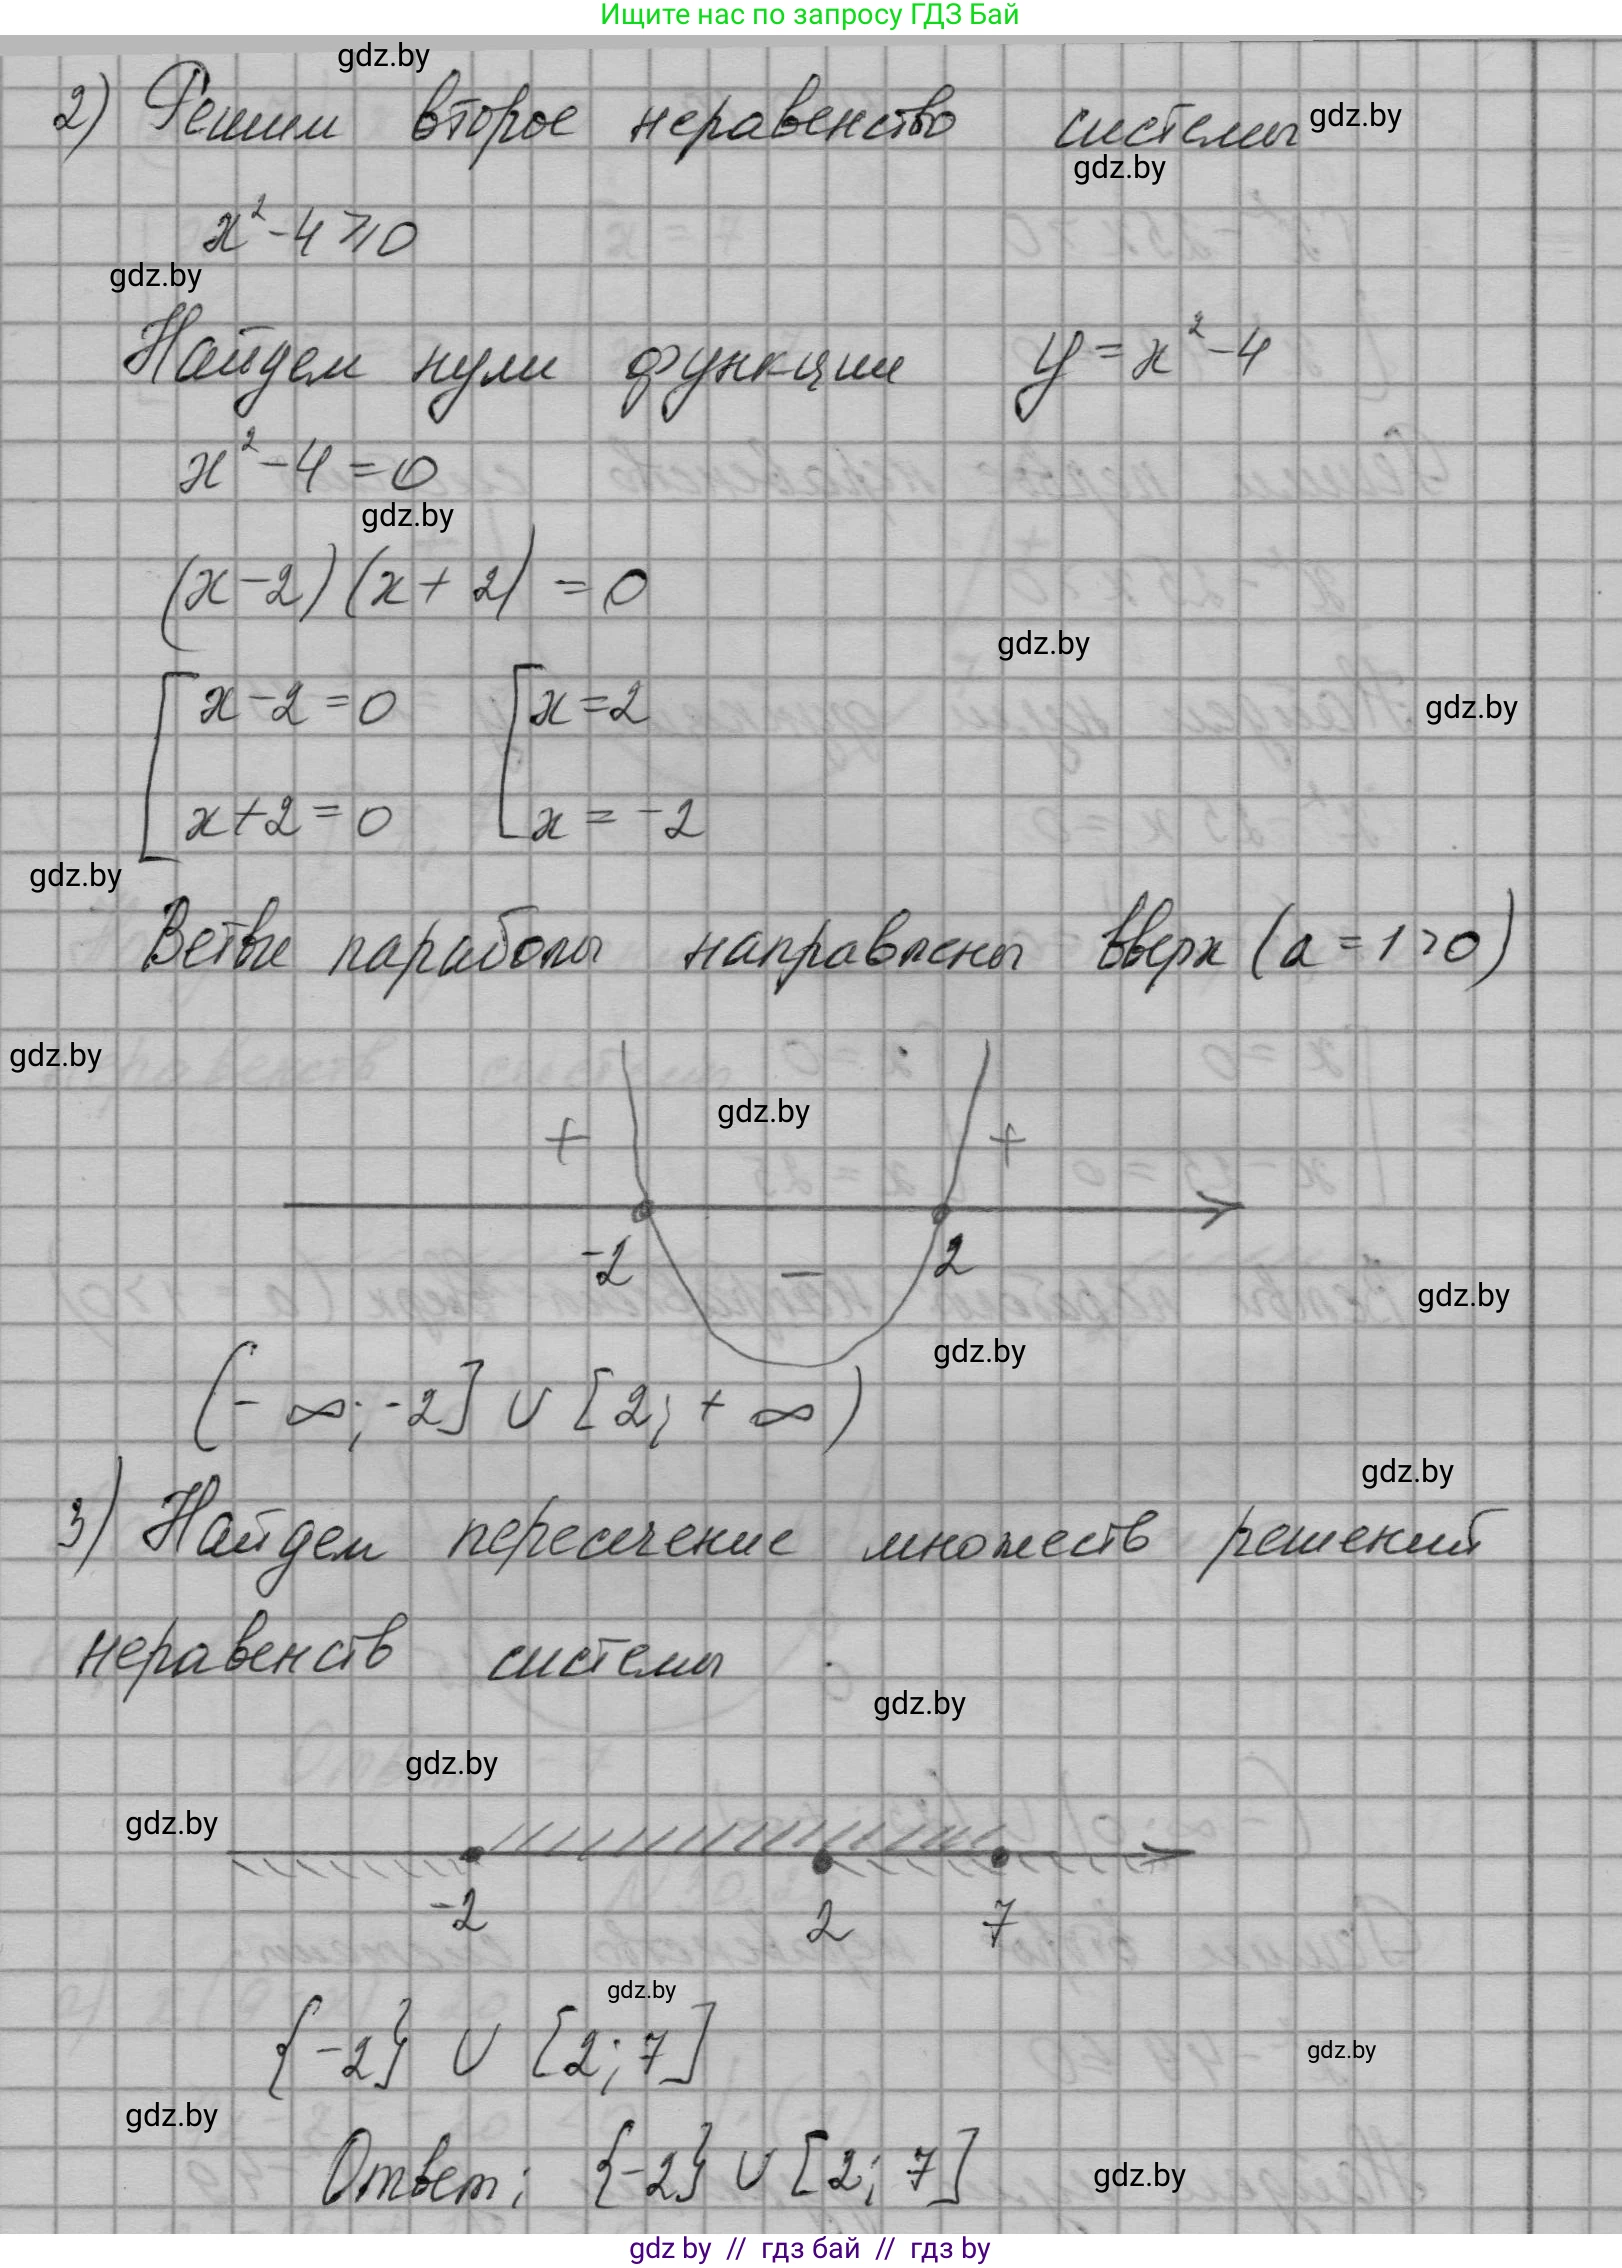 Ищите нас по запросу ГДЗ Бай
gdz.by
2) Решим второе неравенство системы gdz.by
gdz.by
x²-4⩾0
gdz.by
Найдем нули функции y=x²-4
x²-4=0
gdz.by
(x-2)(x+2)=0
gdz.by
[x-2=0 [x=2
gdz.by
x+2=0 x=-2
gdz.by
Ветви параболы направлены вверх (a=1>0)
gdz.by
gdz.by
+ +
-2 - 2
gdz.by
gdz.by
(-∞;-2] ∪ [2;+∞)
gdz.by
3) Найдем пересечение множеств решений
неравенств системы
gdz.by
gdz.by
gdz.by
-2 2 7
gdz.by
{-2} ∪ [2;7]
gdz.by
gdz.by
Ответ: {-2} ∪ [2;7]
gdz.by
gdz by // гдз бай // гдз by